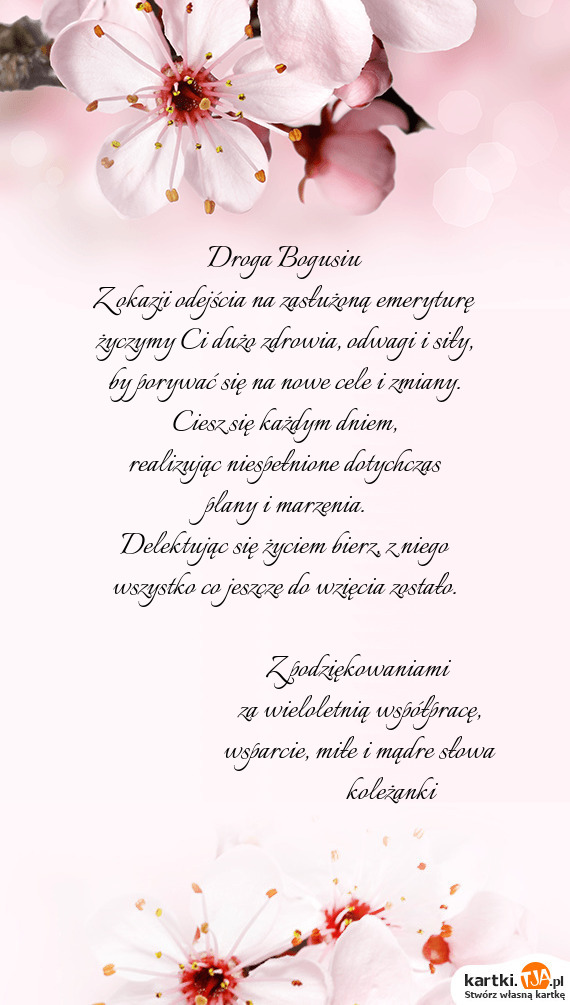 Droga Bogusiu
Z okazji odejścia na zasłużoną emeryturę
życzymy Ci dużo zdrowia, odwagi i siły,
by porywać się na nowe cele i zmiany.
Ciesz się każdym dniem,
realizując niespełnione dotychczas
plany i marzenia.
Delektując się życiem bierz z niego
wszystko co jeszcze do wzięcia zostało.
Z podziękowaniami
za wieloletnią współpracę,
wsparcie, miłe i mądre słowa
koleżanki
kartki.TJA.pl
Stwórz własną kartkę